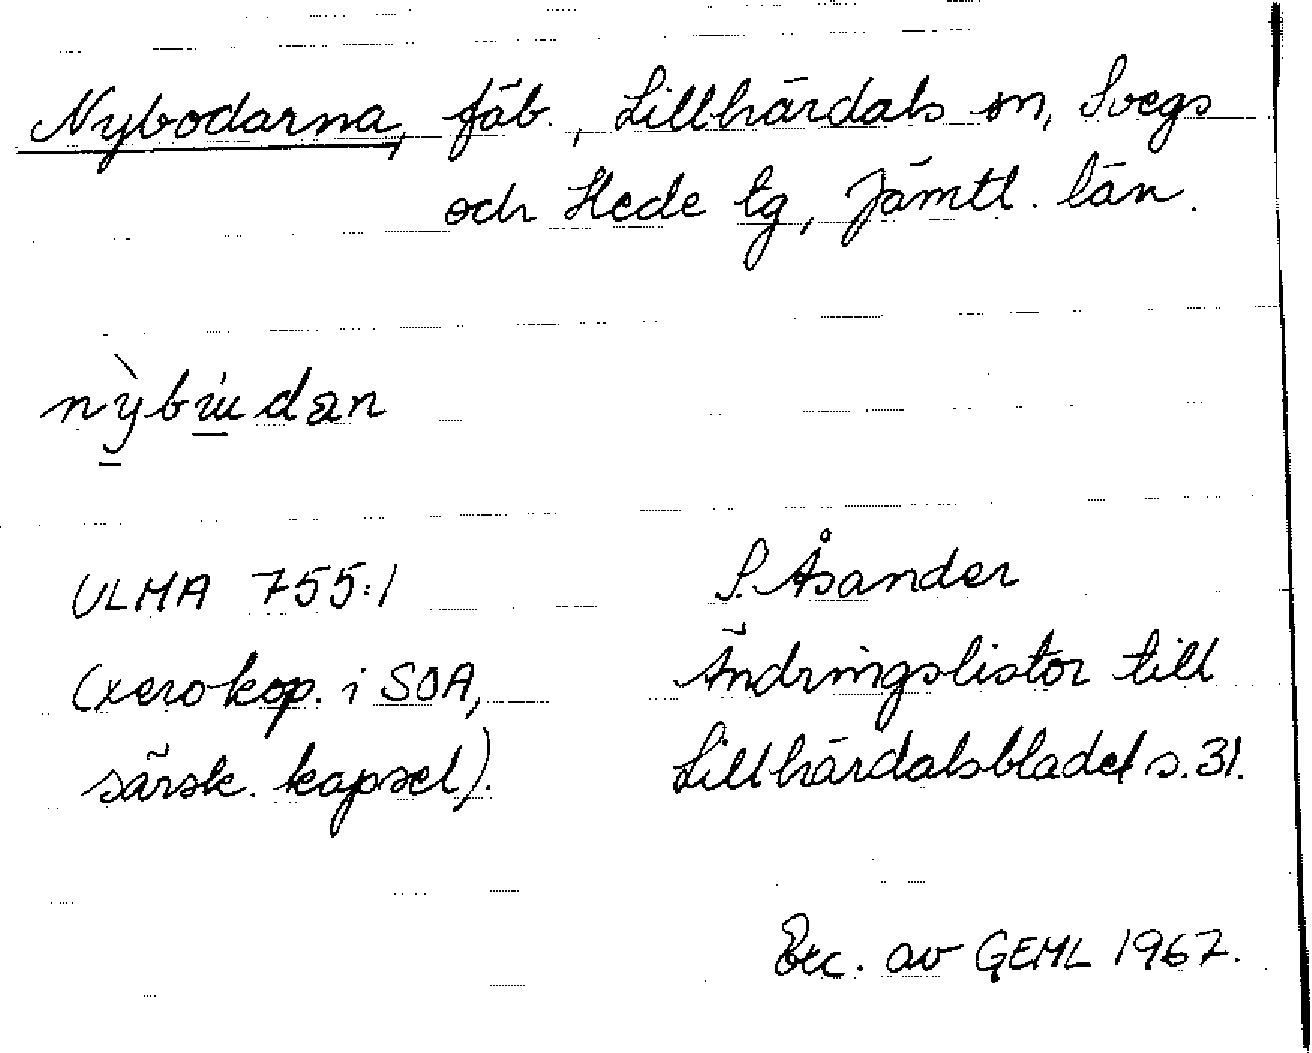 Nybodarna, fäb., Lillhärdals sn, Svegs
och Hede tg, Jämtl. län.
ULMA 755:1
S. Åsander
(xerokop. i SOA,
Ändringslistor till
särsk. kapsel).
Lillhärdalsbladet s. 31.
Exc. av GEML 1967.